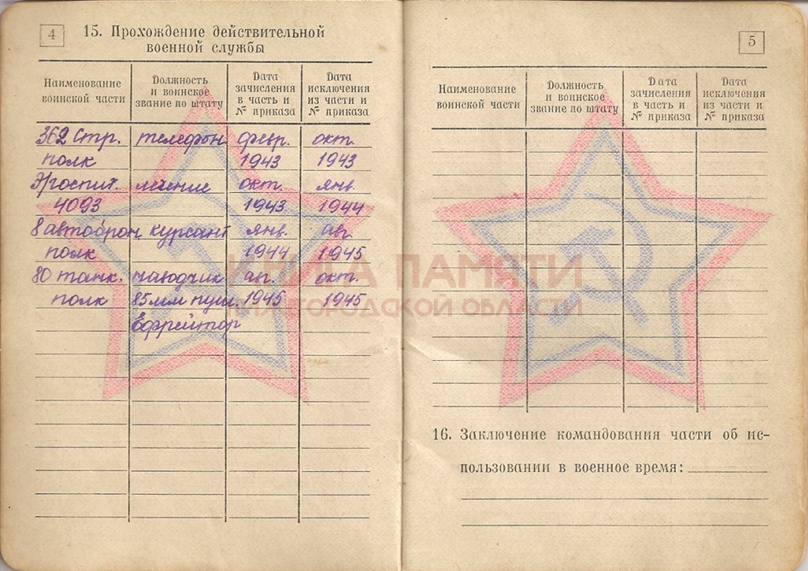 4
15. Прохождение действительной
военной службы
Наименование воинской части
Должность и воинское звание по штату
Дата зачисления в часть и № приказа
Дата исключения из части и № приказа
362 Стр. телефон. февр. окт.
полк 1943 1943
Эгоспит. лечение окт. янв.
4093 1943 1944
8 автоброн. курсант янв. авг.
полк 1944 1945
80 танк. наводчик авг. окт.
полк 85мм пуш. 1945 1945
Ефрейтор
5
Наименование воинской части
Должность и воинское звание по штату
Дата зачисления в часть и № приказа
Дата исключения из части и № приказа
КНИГА ПАМЯТИ
НИЖЕГОРОДСКОЙ ОБЛАСТИ
16. Заключение командования части об ис-
пользовании в военное время: